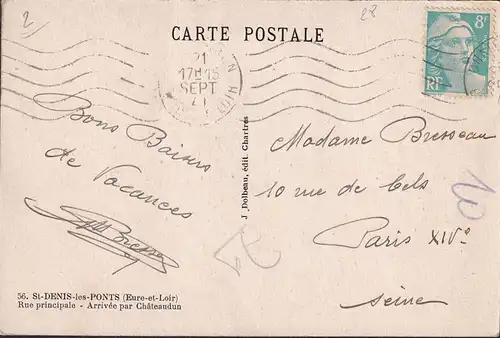 2/
28
CARTE POSTALE
8F
RF
21
17H15
SEPT
Bons Baisers
de Vacances
Madame Bresseau
10 rue de Cels
Paris XIVe
Seine
10
J. Dolbeau, édit. Chartres
56. St-DENIS-les-PONTS (Eure-et-Loir)
Rue principale - Arrivée par Châteaudun